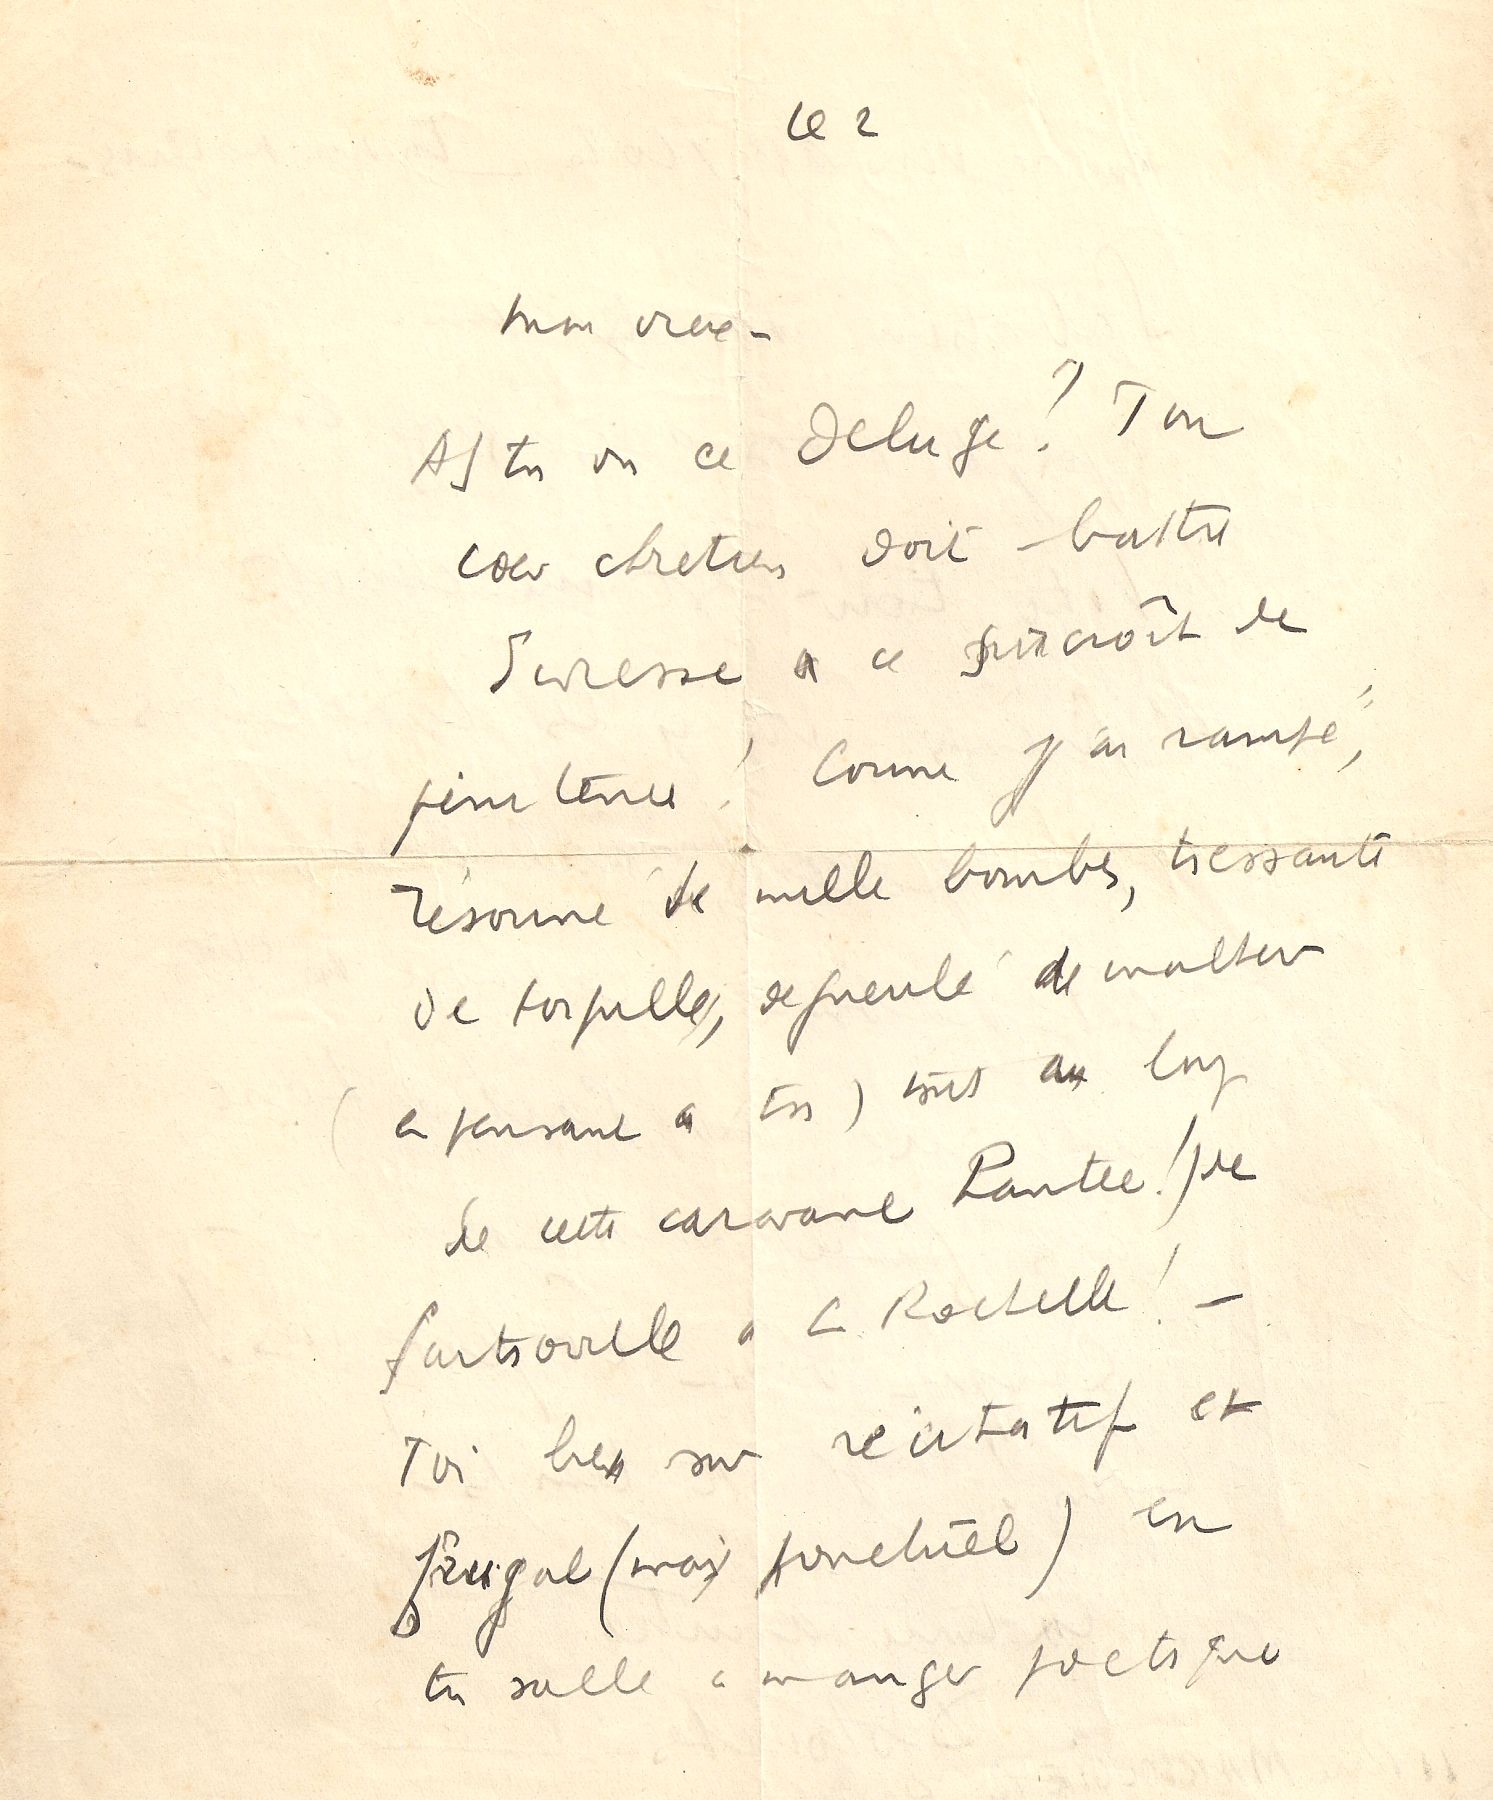 Le 2
mon vieux -
As tu vu ce Deluge! Ton
coeur chretien doit battre
d'ivresse a ce surcroît de
penitence! Comme j'ai rampé,
résonné de mille bombes, tressauté
de torpilles, degueulé de malheur
(en pensant a toi) tout au long
de cette caravane Pantee!) de
Sartrouville a La Rochelle! -
Toi bien sur récitatif et
frugal (mais ponctuel) en
ta salle a manger poetique